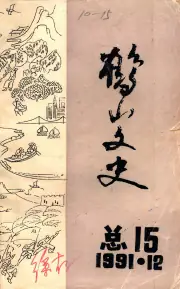 10-15
鹤山文史
总15
1991·12